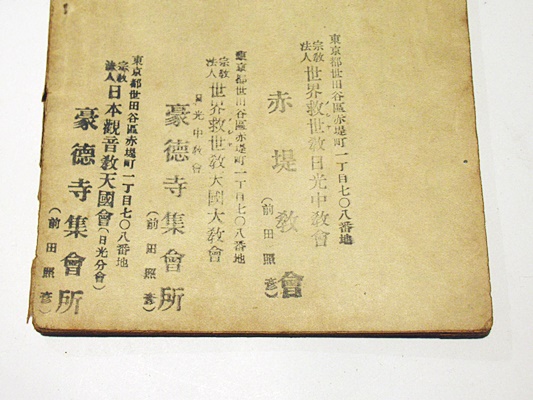 東京都世田谷區赤堤町一丁目七〇八番地
宗教法人 世界救世教日光中教會
赤堤教會
(前田照彦)
東京都世田谷區赤堤町一丁目七〇八番地
宗教法人 世界救世教天國大教會
日光中教會
豪德寺集會所
(前田照彦)
東京都世田谷區赤堤町一丁目七〇八番地
宗教法人 日本觀音教天國會(日光分會)
豪德寺集會所
(前田照彦)